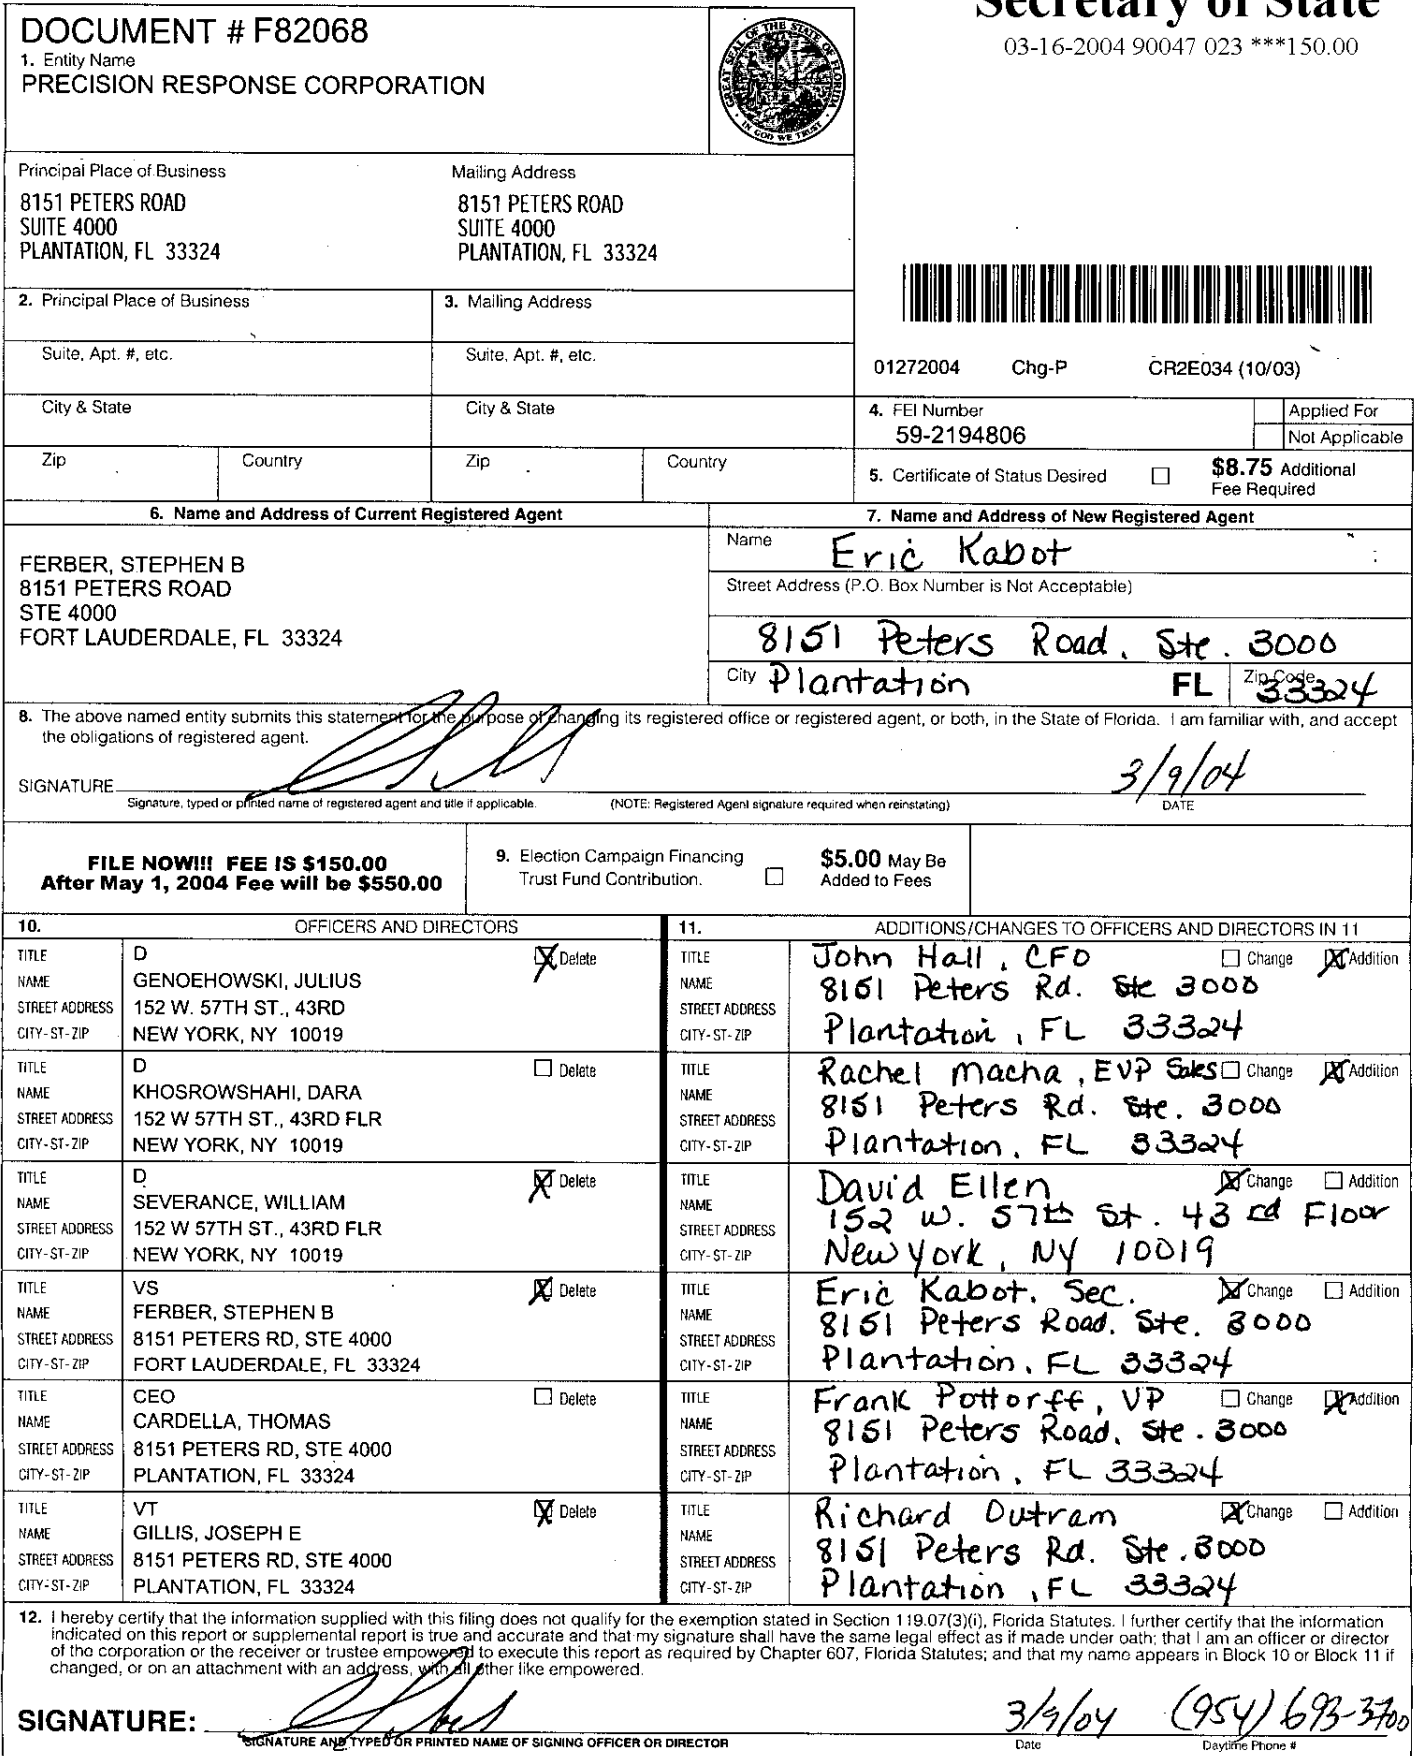 Secretary of State
03-16-2004 90047 023 ***150.00
DOCUMENT # F82068
1. Entity Name
PRECISION RESPONSE CORPORATION
GREAT SEAL OF THE STATE OF FLORIDA
IN GOD WE TRUST
Principal Place of Business
8151 PETERS ROAD
SUITE 4000
PLANTATION, FL 33324
Mailing Address
8151 PETERS ROAD
SUITE 4000
PLANTATION, FL 33324
2. Principal Place of Business
3. Mailing Address
Suite, Apt. #, etc.
Suite, Apt. #, etc.
01272004 Chg-P CR2E034 (10/03)
City & State
City & State
4. FEI Number
59-2194806
Applied For
Not Applicable
Zip
Country
Zip
Country
5. Certificate of Status Desired
$8.75 Additional
Fee Required
6. Name and Address of Current Registered Agent
FERBER, STEPHEN B
8151 PETERS ROAD
STE 4000
FORT LAUDERDALE, FL 33324
7. Name and Address of New Registered Agent
Name Eric Kabot
Street Address (P.O. Box Number is Not Acceptable)
8151 Peters Road, Ste. 3000
City Plantation FL Zip Code 33324
8. The above named entity submits this statement for the purpose of changing its registered office or registered agent, or both, in the State of Florida. I am familiar with, and accept
the obligations of registered agent.
SIGNATURE 3/9/04
Signature, typed or printed name of registered agent and title if applicable. (NOTE: Registered Agent signature required when reinstating) DATE
FILE NOW!!! FEE IS $150.00
After May 1, 2004 Fee will be $550.00
9. Election Campaign Financing
Trust Fund Contribution.
$5.00 May Be
Added to Fees
10. OFFICERS AND DIRECTORS
TITLE D Delete
NAME GENOEHOWSKI, JULIUS
STREET ADDRESS 152 W. 57TH ST., 43RD
CITY-ST-ZIP NEW YORK, NY 10019
TITLE D Delete
NAME KHOSROWSHAHI, DARA
STREET ADDRESS 152 W 57TH ST., 43RD FLR
CITY-ST-ZIP NEW YORK, NY 10019
TITLE D Delete
NAME SEVERANCE, WILLIAM
STREET ADDRESS 152 W 57TH ST., 43RD FLR
CITY-ST-ZIP NEW YORK, NY 10019
TITLE VS Delete
NAME FERBER, STEPHEN B
STREET ADDRESS 8151 PETERS RD, STE 4000
CITY-ST-ZIP FORT LAUDERDALE, FL 33324
TITLE CEO Delete
NAME CARDELLA, THOMAS
STREET ADDRESS 8151 PETERS RD, STE 4000
CITY-ST-ZIP PLANTATION, FL 33324
TITLE VT Delete
NAME GILLIS, JOSEPH E
STREET ADDRESS 8151 PETERS RD, STE 4000
CITY-ST-ZIP PLANTATION, FL 33324
11. ADDITIONS/CHANGES TO OFFICERS AND DIRECTORS IN 11
TITLE John Hall, CFO Change Addition
NAME 8151 Peters Rd. Ste 3000
STREET ADDRESS
CITY-ST-ZIP Plantation, FL 33324
TITLE Rachel Macha, EVP Sales Change Addition
NAME 8151 Peters Rd. Ste. 3000
STREET ADDRESS
CITY-ST-ZIP Plantation, FL 33324
TITLE David Ellen Change Addition
NAME 152 W. 57th St. 43rd Floor
STREET ADDRESS
CITY-ST-ZIP New York, NY 10019
TITLE Eric Kabot, Sec. Change Addition
NAME 8151 Peters Road, Ste. 3000
STREET ADDRESS
CITY-ST-ZIP Plantation, FL 33324
TITLE Frank Pottorff, VP Change Addition
NAME 8151 Peters Road, Ste. 3000
STREET ADDRESS
CITY-ST-ZIP Plantation, FL 33324
TITLE Richard Outram Change Addition
NAME 8151 Peters Rd. Ste. 3000
STREET ADDRESS
CITY-ST-ZIP Plantation, FL 33324
12. I hereby certify that the information supplied with this filing does not qualify for the exemption stated in Section 119.07(3)(i), Florida Statutes. I further certify that the information
indicated on this report or supplemental report is true and accurate and that my signature shall have the same legal effect as if made under oath; that I am an officer or director
of the corporation or the receiver or trustee empowered to execute this report as required by Chapter 607, Florida Statutes; and that my name appears in Block 10 or Block 11 if
changed, or on an attachment with an address, with all other like empowered.
SIGNATURE: 3/9/04 (954) 693-3700
SIGNATURE AND TYPED OR PRINTED NAME OF SIGNING OFFICER OR DIRECTOR Date Daytime Phone #